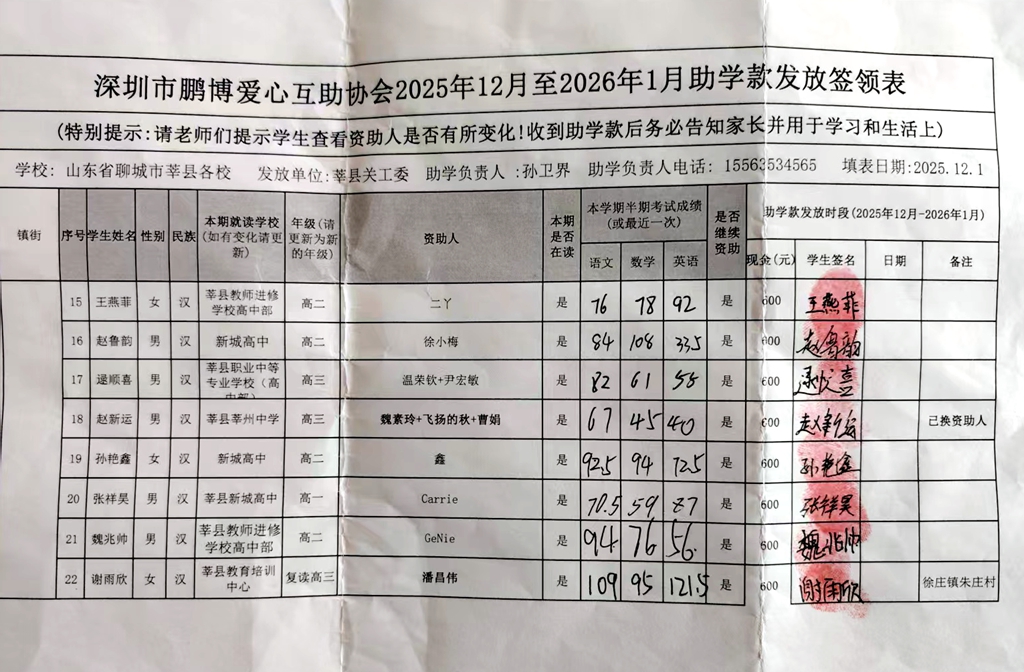 深圳市鹏博爱心互助协会2025年12月至2026年1月助学款发放签领表
(特别提示:请老师们提示学生查看资助人是否有所变化!收到助学款后务必告知家长并用于学习和生活上)
学校: 山东省聊城市莘县各校 发放单位:莘县关工委 助学负责人 :孙卫界 助学负责人电话: 15563534565 填表日期:2025.12.1
镇街 序号 学生姓名 性别 民族 本期就读学校(如有变化请更新) 年级(请更新为新的年级) 资助人 本期是否在读 本学期半期考试成绩(或最近一次) 是否继续资助 助学款发放时段(2025年12月-2026年1月)
语文 数学 英语 现金(元) 学生签名 日期 备注
15 王燕菲 女 汉 莘县教师进修学校高中部 高二 二丫 是 76 78 92 是 600 王燕菲
16 赵鲁韵 男 汉 新城高中 高二 徐小梅 是 84 108 33.5 是 600 赵鲁韵
17 逯顺喜 男 汉 莘县职业中等专业学校(高中部) 高三 温荣钦+尹宏敏 是 82 61 58 是 600
18 赵新运 男 汉 莘县莘州中学 高三 魏素玲+飞扬的秋+曹娟 是 67 45 40 是 600 赵新运 已换资助人
19 孙艳鑫 女 汉 新城高中 高二 鑫 是 92.5 94 72.5 是 600 孙艳鑫
20 张祥昊 男 汉 莘县新城高中 高一 Carrie 是 70.5 59 87 是 600 张祥昊
21 魏兆帅 男 汉 莘县教师进修学校高中部 高二 GeNie 是 94 76 56. 是 600 魏兆帅
22 谢雨欣 女 汉 莘县教育培训中心 复读高三 潘昌伟 是 109 95 121.5 是 600 谢雨欣 徐庄镇朱庄村